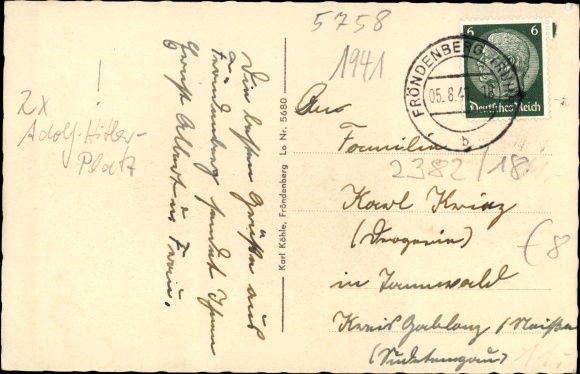 5758
1941
2x
!
Adolf-Hitler-
Platz
Die besten Grüße aus
Fröndenberg sendet Ihnen
Ernst Albert u. Frau.
Karl Köhle, Fröndenberg Lo Nr. 5680
6 6
Deutsches Reich
FRÖNDENBERG
05.8.41
b
An
Familie
2382/18
Karl
(Drogerie)
in Tannwald
Kreis Gablonz/Neiße
(Sudetengau)
€8